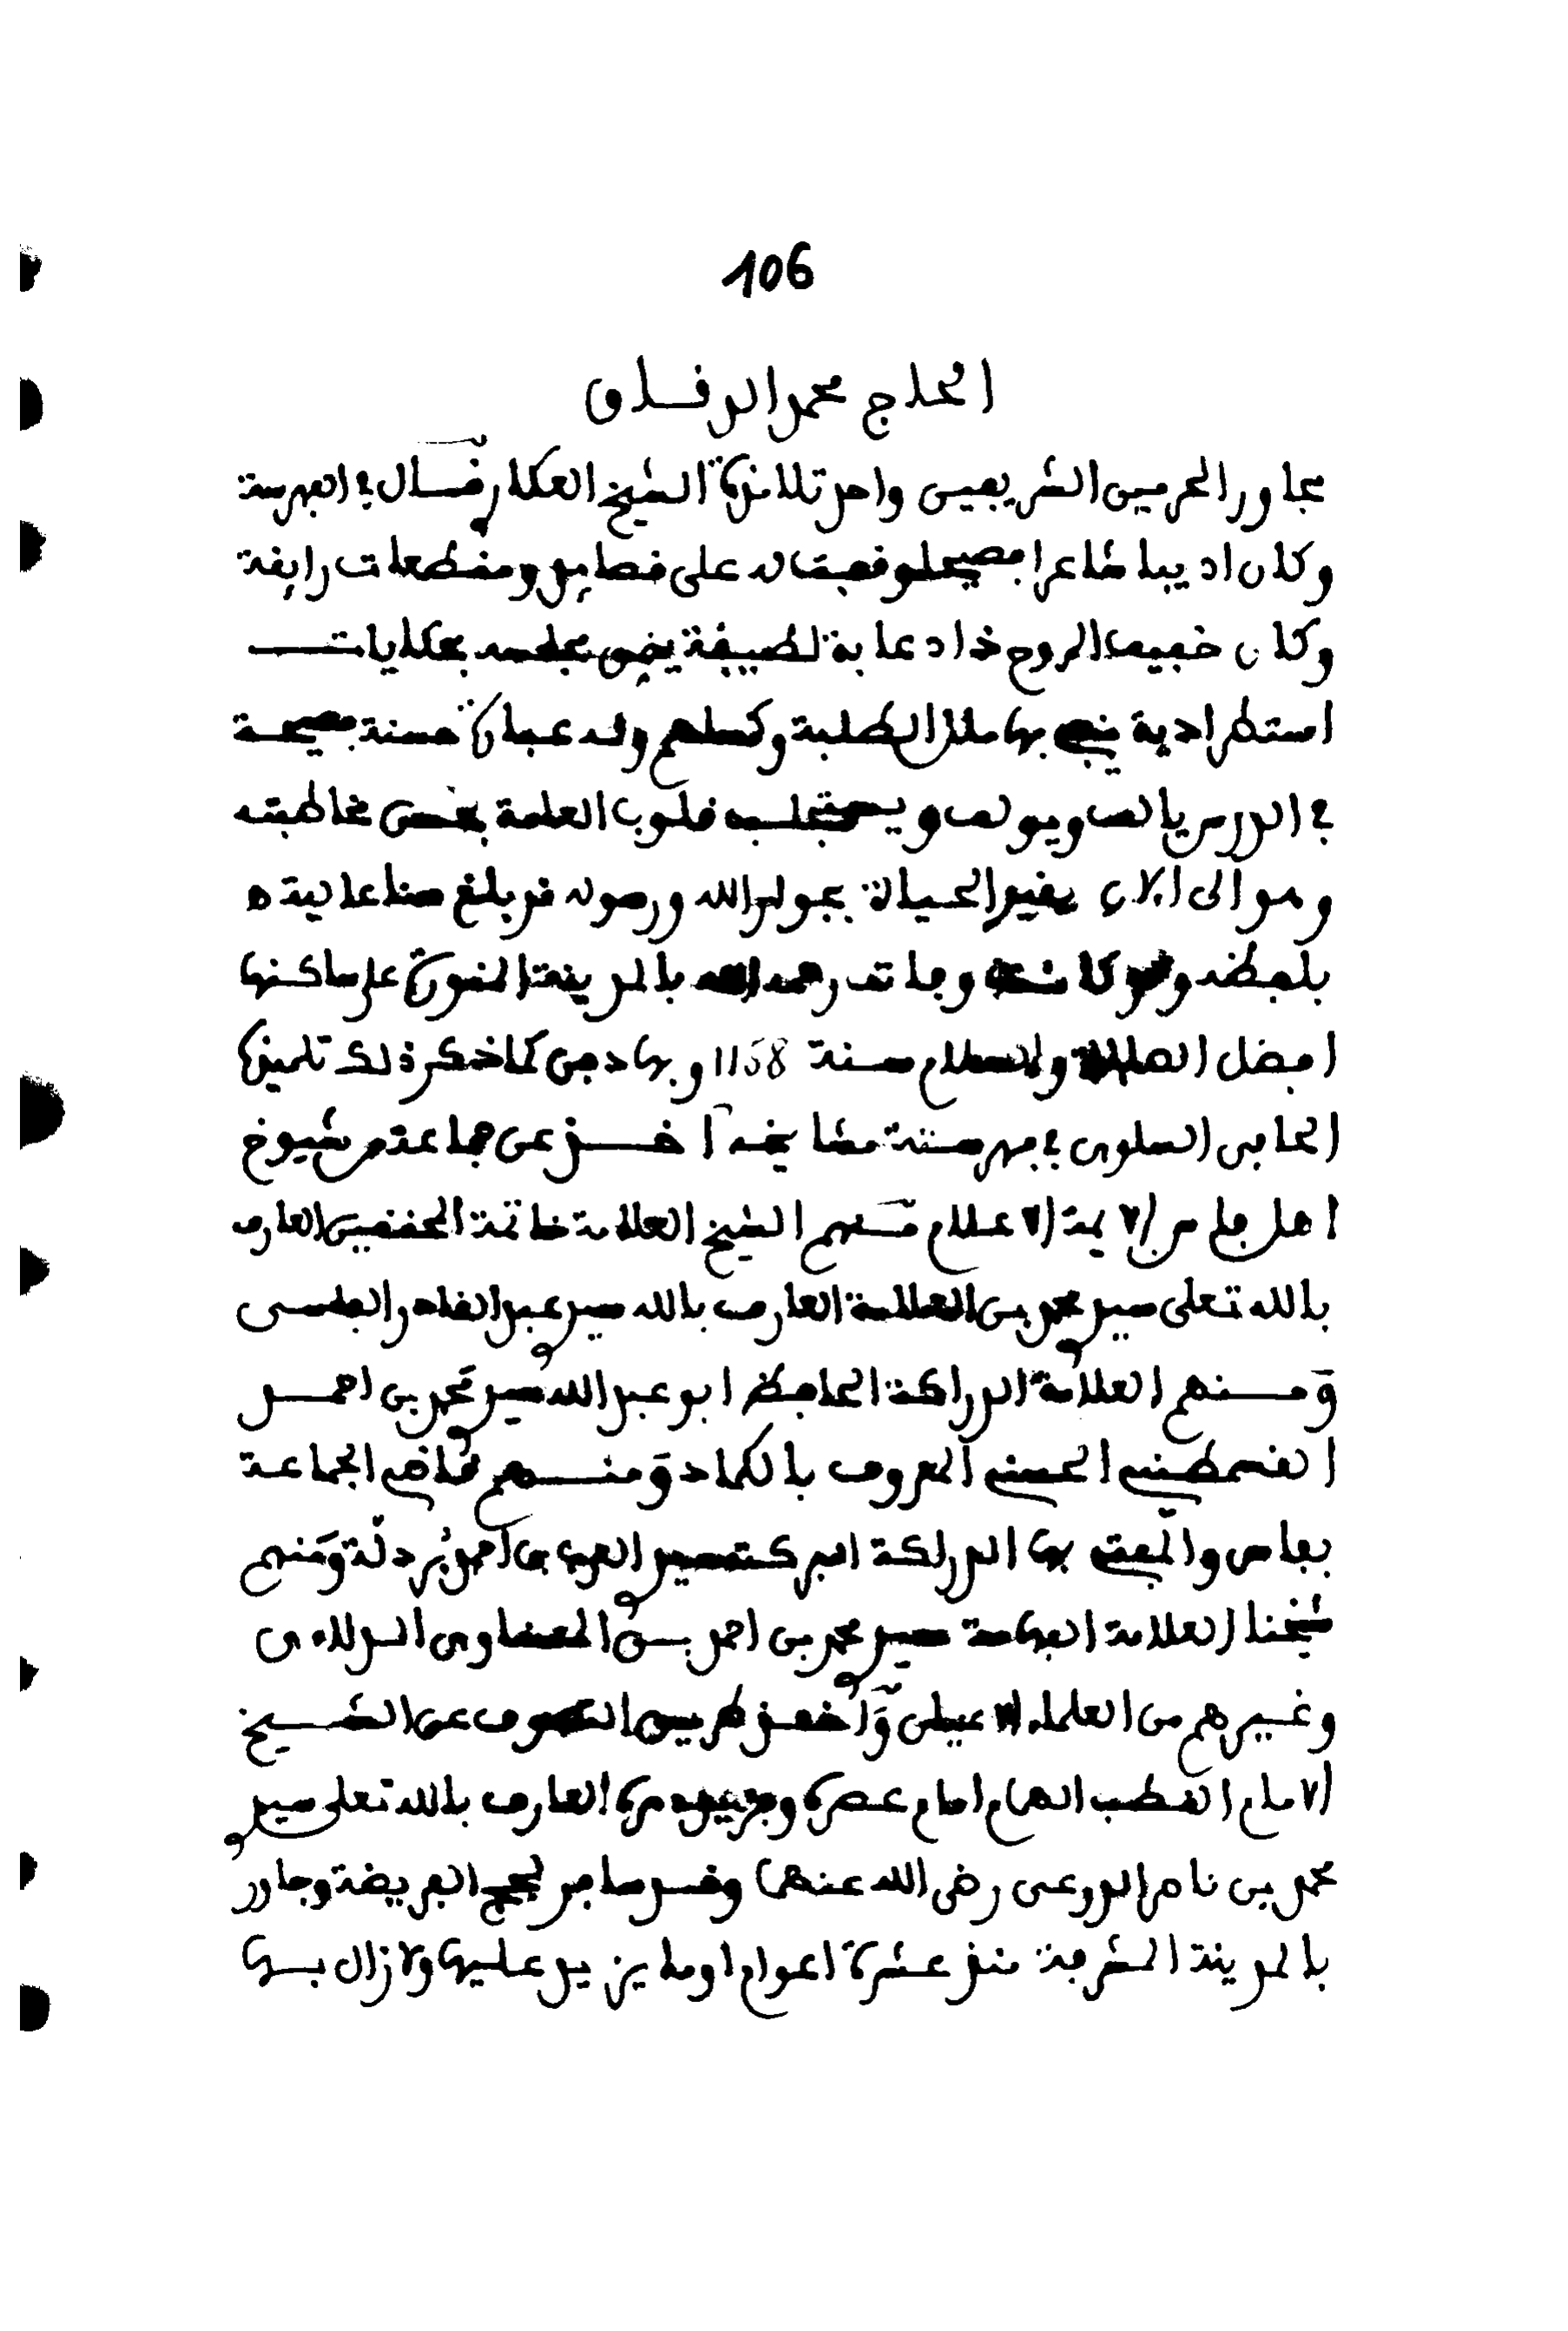 106
الحاج محمد الرقاق
مجاور الحرمين الشريفين واحد تلامذة الشيخ العكاري قال في الفهرسة
وكان اديبا شاعرا فصيحا وقفت له على قصايد ومقطعات رايقة
وكان خفيف الروح ذا دعابة لطيفة يزين مجلسه بحكايات
استطرادية ينفي بها ملل الطلبة وكسلهم وله عبارة حسنة فصيحة
في الدرس يالف ويولف ويستجلب قلوب العامة بحسن مخاطبته
وهو الى الان بقيد الحياة بحول الله ورسوله قد بلغ سنا عالية ه
بلفظه وماتت رحمه الله بالمدينة المنورة على ساكنها
افضل الصلاة والسلام سنة 1158 وبها دفن كما ذكر ذلك تلميذه
الحافي السلوي في فهرسته مشايخه اخذ عن جماعة من شيوخ
اهل فاس الايمة الاعلام منهم الشيخ العلامة خاتمة المحققين العارف
بالله تعلى سيدي محمد بن العلامة العارف بالله سيدي عبد القادر الفاسي
ومنهم العلامة الدراكة الحافظ ابو عبد الله سيدي محمد بن احمد
القسمطيني الحسني المعروف بالكماد ومنهم قاضي الجماعة
بفاس والمفتي بها الدراكة البركة سيدي العربي بن احمد بردلة ومنهم
شيخنا العلامة الفهامة سيدي محمد بن احمد بن المسناوي الدلاءي
وغيرهم من العلماء الاعيان واخذ طريق التصوف عن الشيخ
الامام القطب الهمام امام عصره وفريد دهره العارف بالله تعلى سيدي
محمد بن ناصر الدرعي رضي الله عنهما وقد سافر لحج الفريضة وجاور
بالمدينة المشرفة منذ عشرة اعوام او ما يزيد عليها ولا زال بها